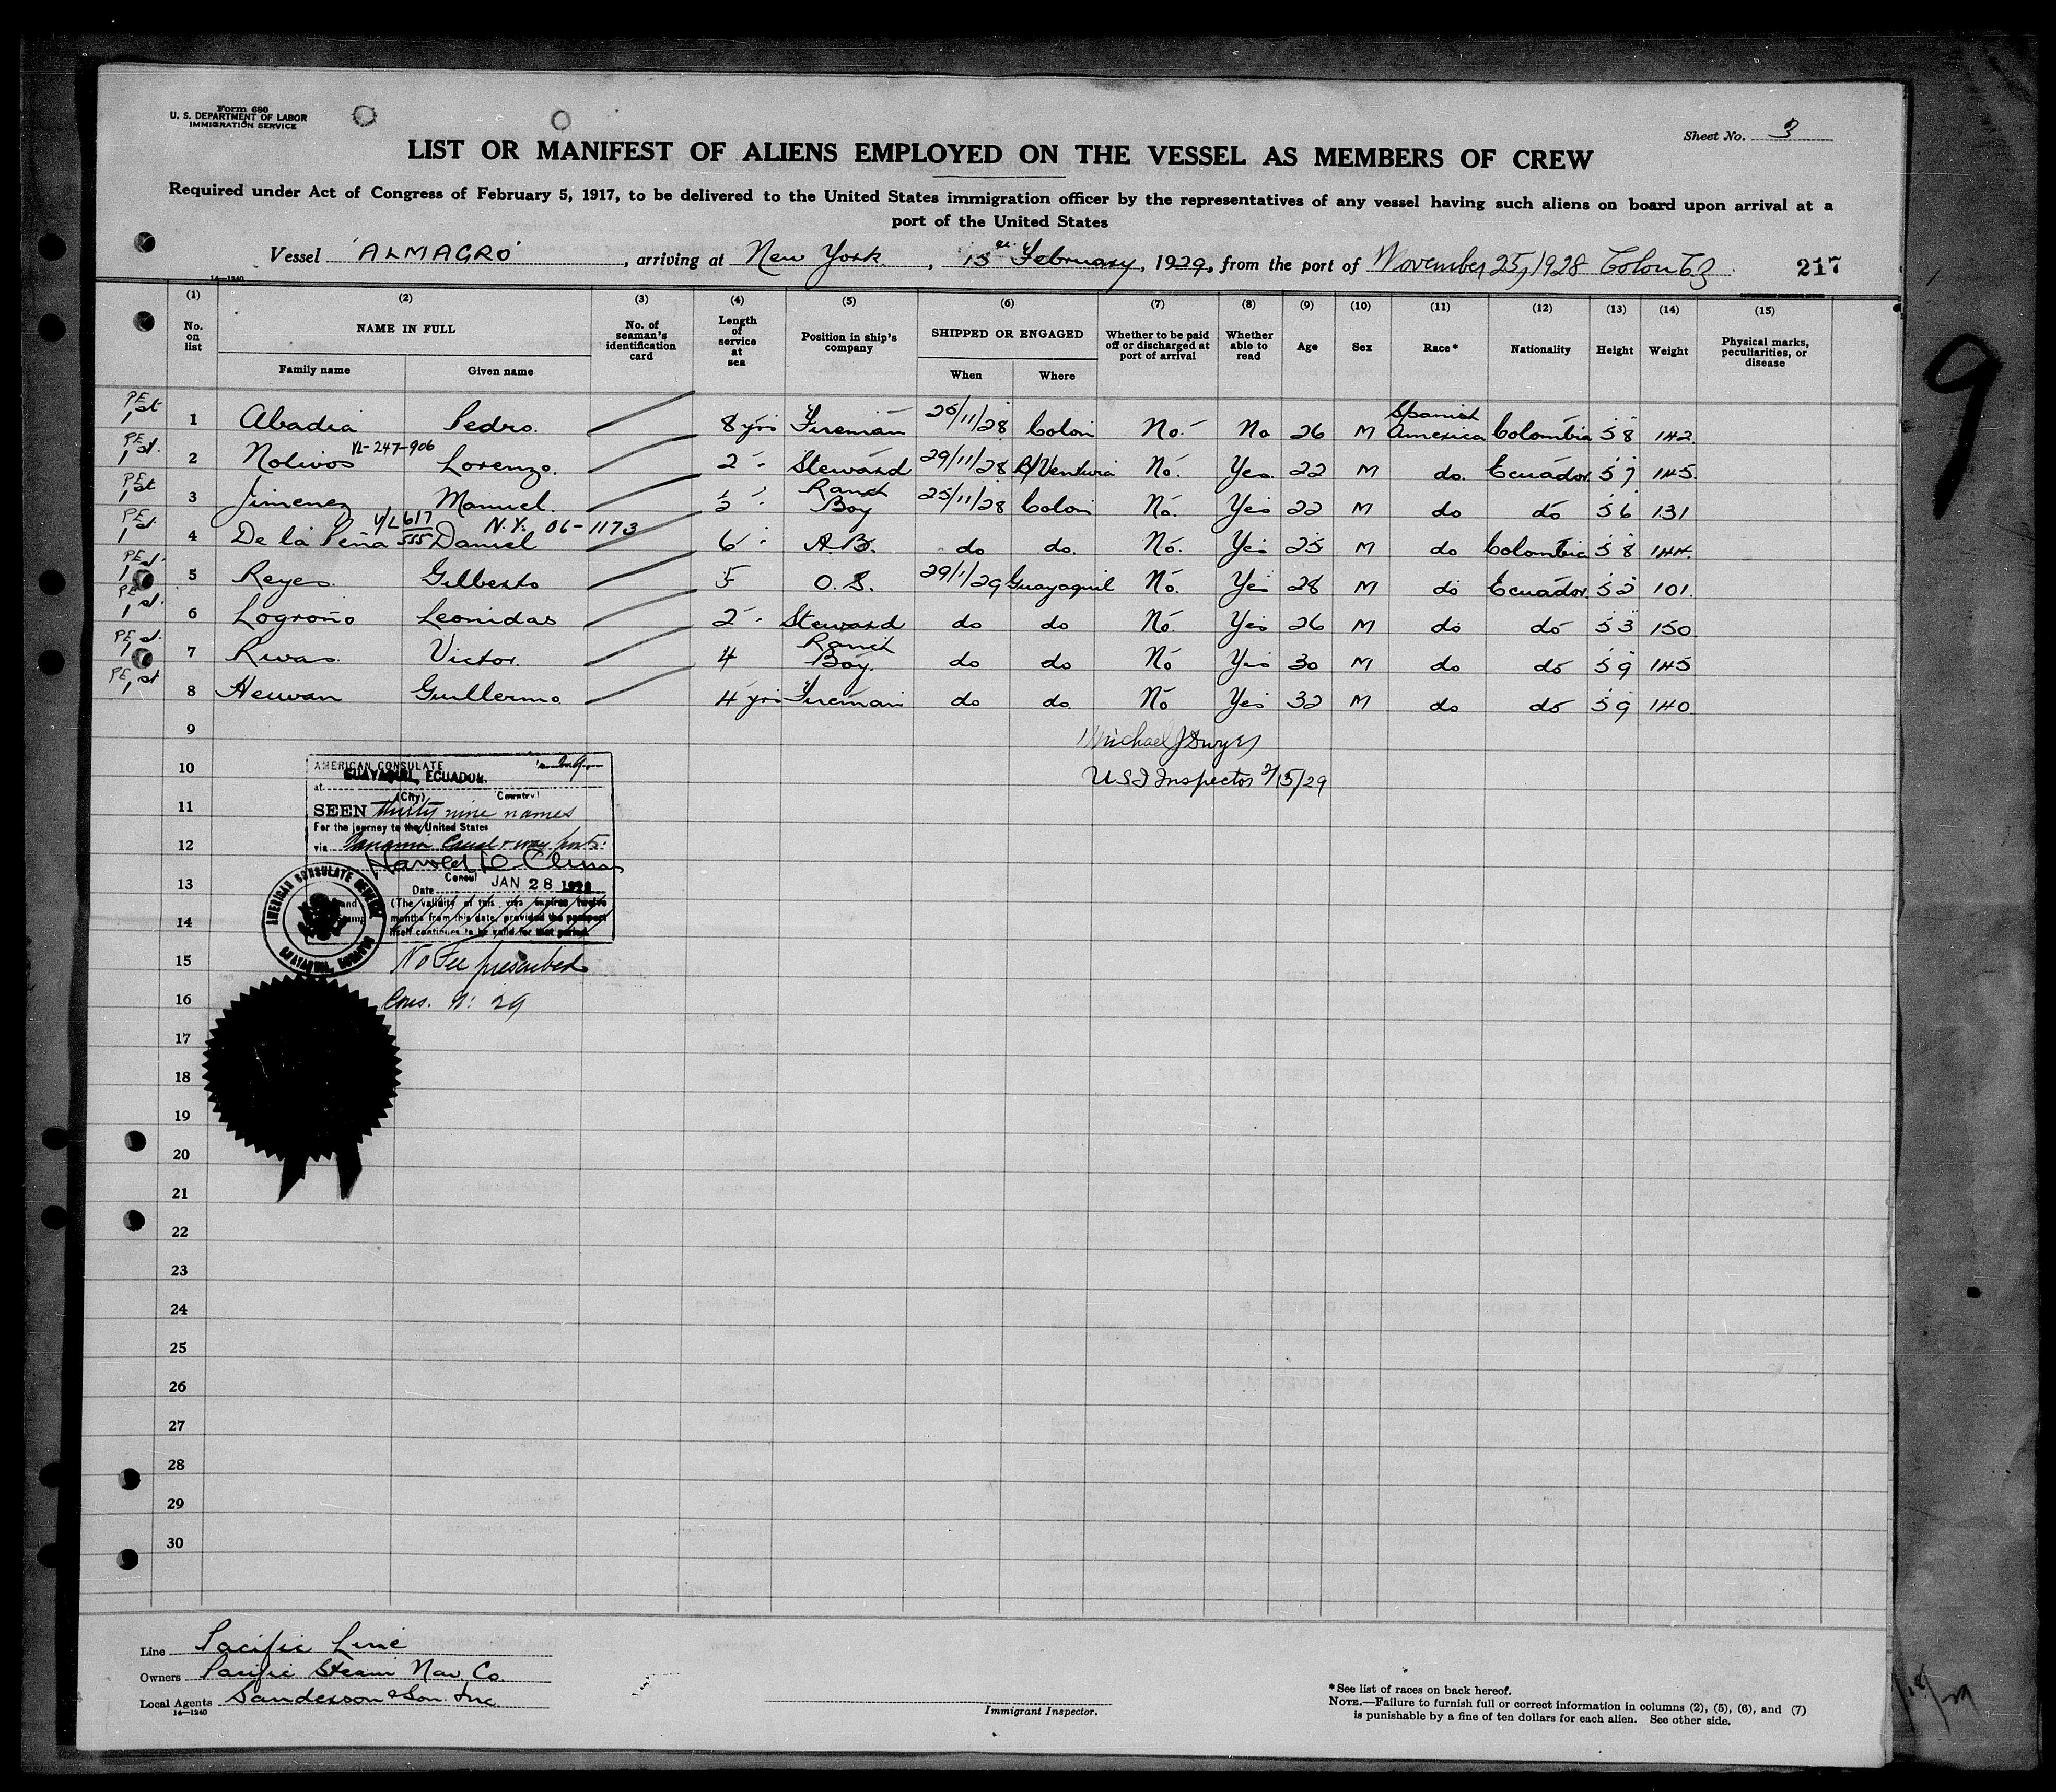 Form 680
U. S. DEPARTMENT OF LABOR
IMMIGRATION SERVICE
Sheet No. 3
LIST OR MANIFEST OF ALIENS EMPLOYED ON THE VESSEL AS MEMBERS OF CREW
Required under Act of Congress of February 5, 1917, to be delivered to the United States immigration officer by the representatives of any vessel having such aliens on board upon arrival at a
port of the United States
Vessel "ALMAGRO", arriving at New York, 15th February, 1929, from the port of November 25, 1928 Colon CZ 217
14—1240
(1) (2) (3) (4) (5) (6) (7) (8) (9) (10) (11) (12) (13) (14) (15)
No. on list NAME IN FULL Family name Given name No. of seaman's identification card Length of service at sea Position in ship's company SHIPPED OR ENGAGED When Where Whether to be paid off or discharged at port of arrival Whether able to read Age Sex Race* Nationality Height Weight Physical marks, peculiarities, or disease
PE 1st 1 Abadia Pedro. 8 yrs Fireman 25/11/28 Colon No. No 26 M Spanish America Colombia 5 8 142
PE 1st. 2 Nolivos YL-247-906 Lorenzo. 2 " Steward 29/11/28 B/Ventura No. Yes. 22 M do. Ecuador 5 7 145.
PE 1st 3 Jimenez Manuel. Boy 25/11/28 Colon No. Yes 22 M do do 5 6 131
PE 1st. 4 De la Peña V/L 617 555 Daniel N.Y. 06-1173 6 " A.B. do do. No. Yes 25 M do Colombia 5 8 144.
PE 1st. 5 Reyes. Gilberto 5 O.S. 29/1/29 Guayaquil No. Yes 28 M do Ecuador. 5 2 101.
PE 1st. 6 Logroño Leonidas 2 " Steward do do No. Yes 26 M do do 5 3 150.
PE 1st. 7 Rivas. Victor. 4 Boy. do do No Yes 30 M do do 5 9 145
PE 1st 8 Guillermo. 4 yrs Fireman do do. No Yes 32 M do do 5 9 140.
9 Michael J Dwyer
10 USI Inspector 2/15/29
11
12
13
14
15
16
17
18
19
20
21
22
23
24
25
26
27
28
29
30
AMERICAN CONSULATE
at GUAYAQUIL, ECUADOR.
(City) (Country)
SEEN thirty nine names
For the journey to the United States
via Panama Canal & way ports.
Harold D. Clum
Consul
Date JAN 28 1929
(The validity of this visa expires twelve
months from this date, provided the passport
itself continues to be valid for that period.
AMERICAN CONSULATE GENERAL
GUAYAQUIL, ECUADOR
No Fee prescribed
Cons. N: 29
9
Line Pacific Line
Owners Pacific Steam Nav Co.
Local Agents Sanderson & Son. Inc.
14—1240
Immigrant Inspector.
*See list of races on back hereof.
NOTE.—Failure to furnish full or correct information in columns (2), (5), (6), and (7)
is punishable by a fine of ten dollars for each alien. See other side.